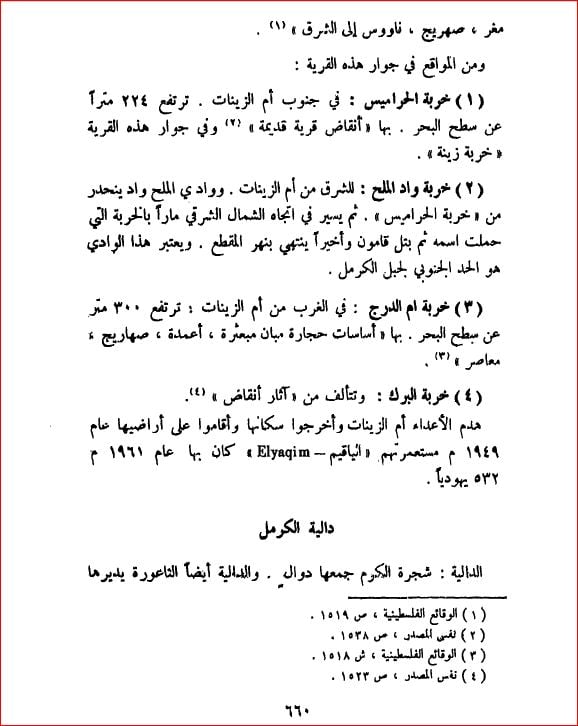 مغر ، صهريج ، ناووس إلى الشرق » (١) .
ومن المواقع في جوار هذه القرية :
(١) خربة الحراميس : في جنوب أم الزينات . ترتفع ٢٢٤ متراً
عن سطح البحر . بها « أنقاض قرية قديمة » (٢) وفي جوار هذه القرية
« خربة زينة » .
(٢) خربة واد الملح : للشرق من أم الزينات . ووادي الملح واد ينحدر
من « خربة الحراميس » . ثم يسير في اتجاه الشمال الشرقي ماراً بالخربة التي
حملت اسمه ثم بتل قامون وأخيراً ينتهي بنهر المقطع . ويعتبر هذا الوادي
هو الحد الجنوبي لجبل الكرمل .
(٣) خربة ام الدرج : في الغرب من أم الزينات : ترتفع ٣٠٠ متر
عن سطح البحر . بها « أساسات حجارة مبان مبعثرة ، أعمدة ، صهاريج ،
معاصر » (٣) .
(٤) خربة البرك : وتتألف من « آثار أنقاض » (٤).
هدم الأعداء أم الزينات وأخرجوا سكانها وأقاموا على أراضيها عام
١٩٤٩ م مستعمرتهم « الياقيم – Elyaqim » كان بها عام ١٩٦١ م
٥٣٢ يهودياً .
دالية الكرمل
الدالية : شجرة الكرم جمعها دوالٍ . والدالية أيضاً الناعورة يديرها
(١) الوقائع الفلسطينية ، ص ١٥١٩ .
(٢) نفس المصدر ، ص ١٥٣٨ .
(٣) الوقائع الفلسطينية ، ش ١٥١٨ .
(٤) نفس المصدر ، ص ١٥٢٣ .
٦٦٠